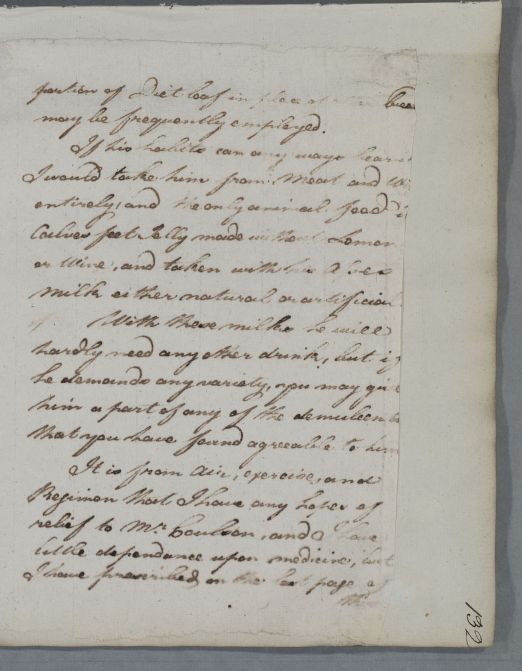 portion of Diet loaf in place of other brea
may be frequently employed.
If his habits can any ways bear
I would take him from Meat and Wi
entirely, and the only animal food i
Calves feet Jelly made without Lemon
or Wine, and taken with his Asses
Milk either natural or artificial
With these milks he will
hardly need any other drink, but if
he demands any variety, you may give
him a part of any of the demulcen
that you have found agreeable to him
It is from Air, exercise, and
Regimen that I have any hopes of
relief to Mr. Coulson, and I have
little dependance upon medicine, but
I have prescribed on the last page of
132